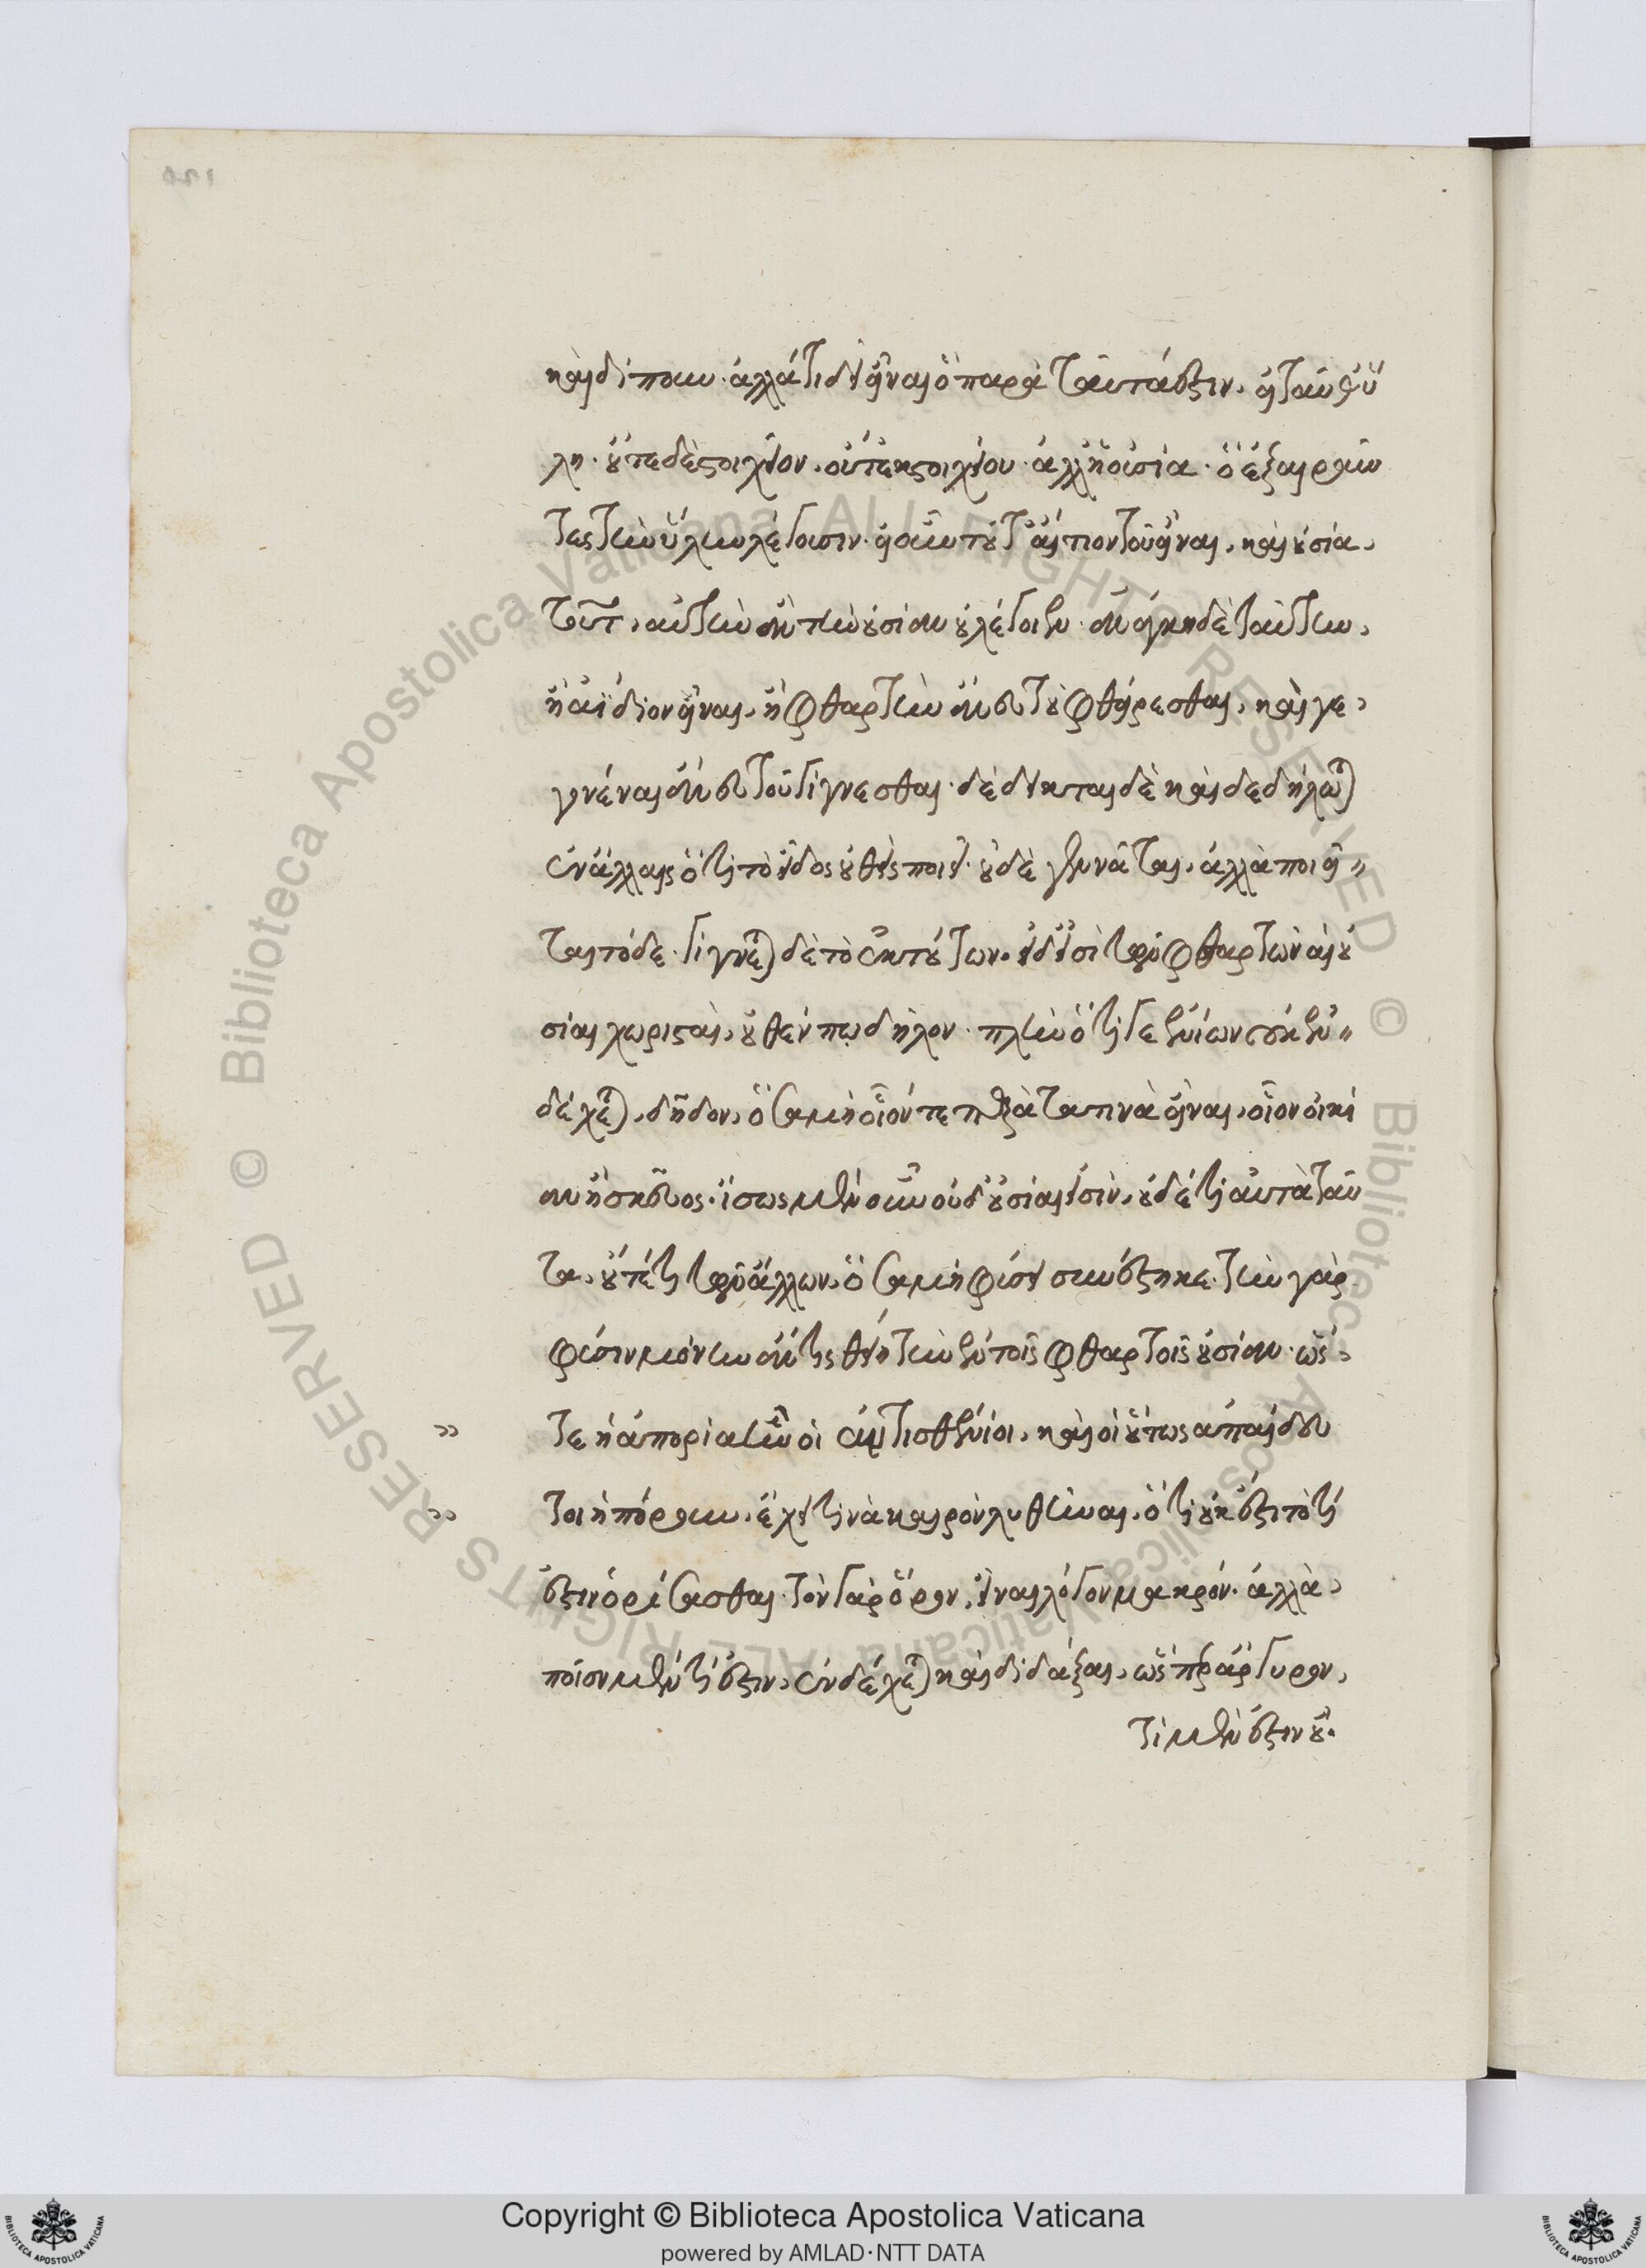 καὶ δίπουν. ἀλλά τι δεῖ εἶναι ὃ παρὰ ταῦτά ἐστιν. εἰ ταῦθ' ὕ
λη. οὔτε δὲ στοιχεῖον. οὔτ' ἐκ στοιχείου. ἀλλ' ἡ οὐσία. ὃ ἐξαιροῦν
τες τὴν ὕλην λέγουσιν. εἰ οὖν τοῦτ' αἴτιον τοῦ εἶναι, καὶ οὐσία,
τοῦτ', αὐτὴν ἂν τὴν οὐσίαν οὐ λέγοιεν. ἀνάγκη δὲ ταύτην,
ἢ ἀΐδιον εἶναι, ἢ φθαρτὴν ἄνευ τοῦ φθείρεσθαι, καὶ γε
γονέναι ἄνευ τοῦ γίγνεσθαι. δέδεικται δὲ καὶ δεδήλωται
ἐν ἄλλοις ὅτι τὸ εἶδος οὐθεὶς ποιεῖ. οὐδὲ γεννᾶται, ἀλλὰ ποιεῖ
ται τόδε. γίγνεται δὲ τὸ ἐκ τούτων. εἰ δ' εἰσὶ τῶν φθαρτῶν αἱ οὐ
σίαι χωρισταὶ, οὐθέν πω δῆλον. πλὴν ὅτι γε ἐνίων οὐκ ἐν
δέχεται, δῆλον, ὅσα μὴ οἷόν τε παρὰ τὰ τινὰ εἶναι, οἷον οἰκί
αν ἢ σκεῦος. ἴσως μὲν οὖν οὐδ' οὐσίαι εἰσὶν, οὐδέ τι αὐτὰ ταῦ
τα, οὔτέ τι τῶν ἄλλων, ὅσα μὴ φύσει συνέστηκε. τὴν γὰρ
φύσιν μόνην ἄν τις θείη τὴν ἐν τοῖς φθαρτοῖς οὐσίαν. ὥσ
τε ἡ ἀπορία ἣν οἱ ἀντισθένειοι, καὶ οἱ οὕτως ἀπαίδευ
τοι ἠπόρουν, ἔχει τινὰ καιρὸν λυθῆναι, ὅτι οὐκ ἔστι τὸ τί
ἐστιν ὁρίσασθαι. τὸν γὰρ ὅρον, εἶναι λόγον μακρόν. ἀλλὰ
ποῖον μέν τί ἐστιν, ἐνδέχεται καὶ διδάξαι, ὥσπερ ἄργυρον,
τί μέν ἐστιν οὔ.